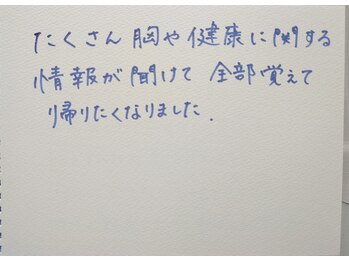 たくさん胸や健康に関する
情報が聞けて 全部覚えて
帰りたくなりました.